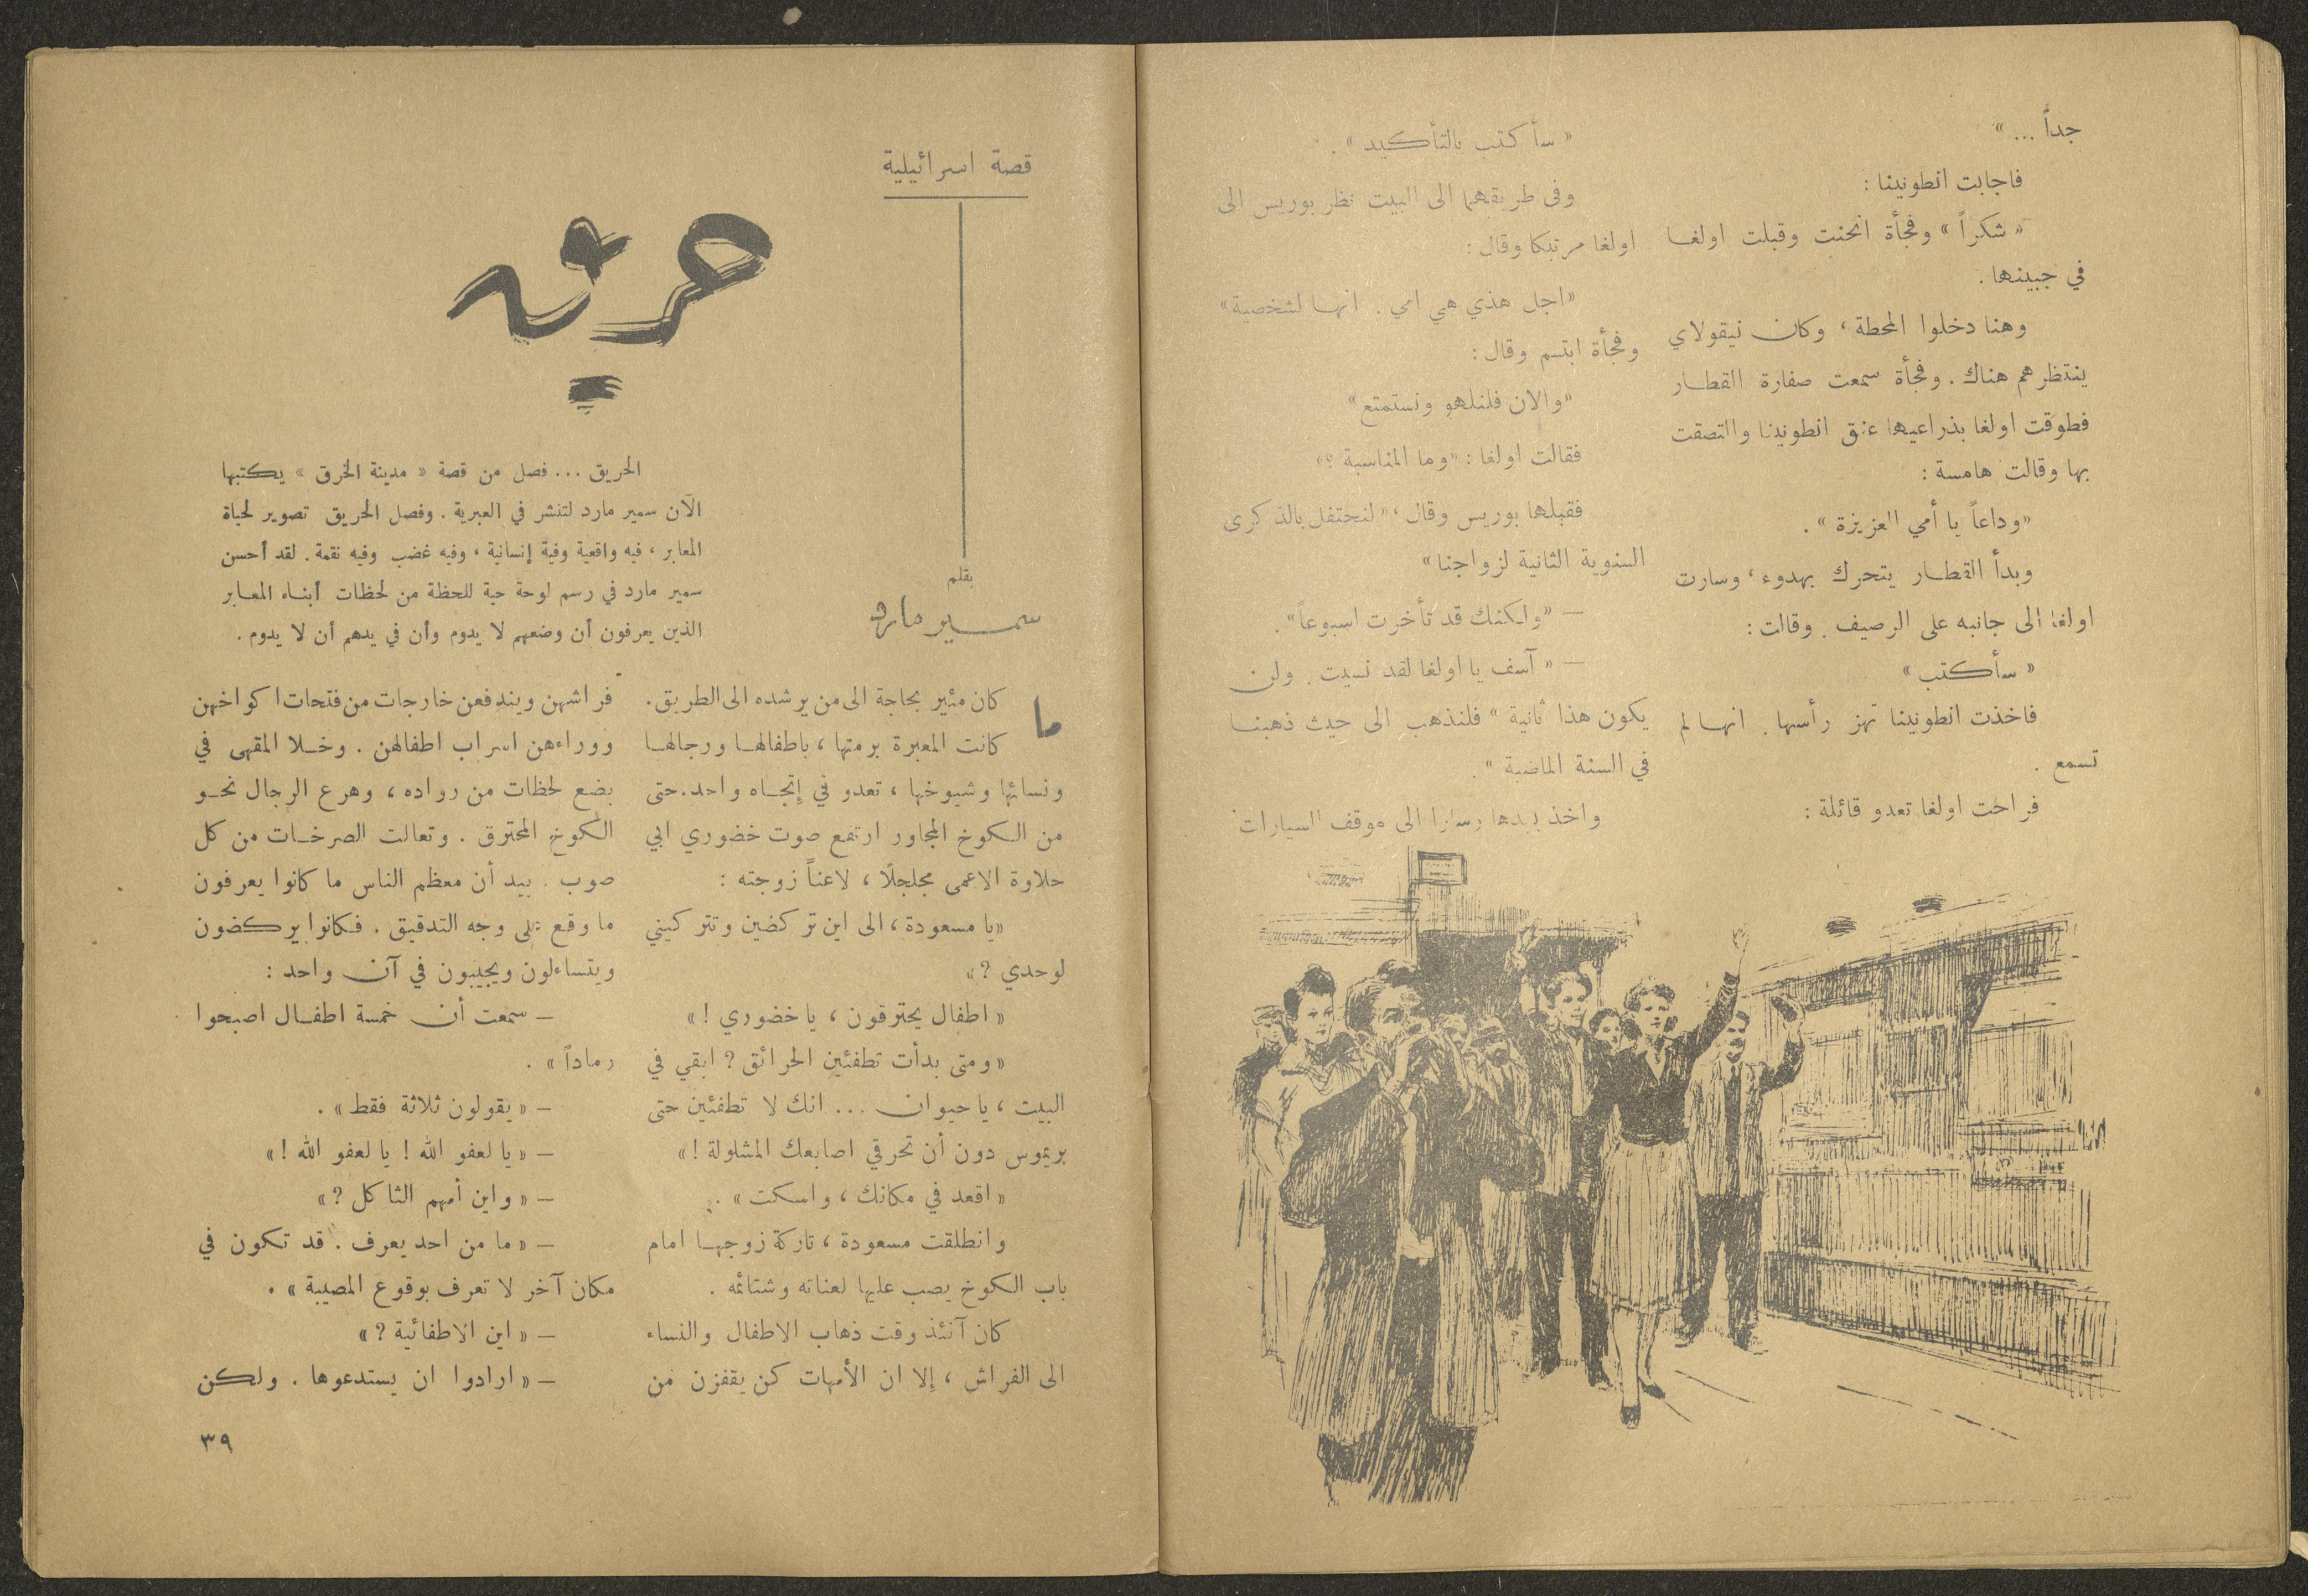 جداً ... »
فاجابت انطونينا :
« شكراً » وفجأة انحنت وقبلت اولغا
في جبينها .
وهنا دخلوا المحطة ، وكان نيقولاي
ينتظرهم هناك . وفجأة سمعت صفارة القطار
فطوقت اولغا بذراعيها عنق انطونينا والتصقت
بها وقالت هامسة :
« وداعاً يا أمي العزيزة » .
وبدأ القطار يتحرك بهدوء ، وسارت
اولغا الى جانبه على الرصيف . وقالت :
« سأكتب »
فاخذت انطونينا تهز رأسها . انها لم
تسمع .
فراحت اولغا تعدو قائلة :
« سأكتب بالتأكيد » .
وفي طريقهما الى البيت نظر بوريس الى
اولغا مرتبكا وقال :
« اجل هذي هي امي . انها لشخصية »
وفجأة ابتسم وقال :
« والان فلنلهو ونستمتع »
فقالت اولغا : « وما المناسبة ؟ »
فقبلها بوريس وقال ، « لنحتفل بالذكرى
السنوية الثانية لزواجنا »
— « ولكنك قد تأخرت اسبوعاً » .
— « آسف يا اولغا لقد نسيت . ولن
يكون هذا ثانية » فلنذهب الى حيث ذهبنا
في السنة الماضية » .
واخذ بيدها وسارا الى موقف السيارات
قصة اسرائيلية
بقلم
سمير مارد
الحريق ... فصل من قصة « مدينة الخرق » يكتبها
الآن سمير مارد لتنشر في العبرية . وفصل الحريق تصوير لحياة
المعابر ، فيه واقعية وفية إنسانية ، وفيه غضب وفيه نقمة . لقد أحسن
سمير مارد في رسم لوحة حية للحظة من لحظات أبناء المعابر
الذين يعرفون أن وضعهم لا يدوم وأن في يدهم أن لا يدوم .
ما كان مئير بحاجة الى من يرشده الى الطريق .
كانت المعبرة برمتها ، باطفالها ورجالها
ونسائها وشيوخها ، تعدو في إتجاه واحد . حتى
من الكوخ المجاور ارتفع صوت خضوري ابي
حلاوة الاعمى مجلجلاً ، لاعناً زوجته :
« يا مسعودة ، الى اين تركضين وتتركيني
لوحدي ? »
« اطفال يحترقون ، يا خضوري ! »
« ومتى بدأت تطفئين الحرائق ? ابقي في
البيت ، يا حيوان ... انك لا تطفئين حتى
بريموس دون أن تحرقي اصابعك المشلولة ! »
« اقعد في مكانك ، واسكت » .
وانطلقت مسعودة ، تاركة زوجها امام
باب الكوخ يصب عليها لعناته وشتائمه .
كان آنئذ وقت ذهاب الاطفال والنساء
الى الفراش ، إلا ان الأمهات كن يقفزن من
فراشهن ويندفعن خارجات من فتحات اكواخهن
ووراءهن اسراب اطفالهن . وخلا المقهى في
بضع لحظات من رواده ، وهرع الرجال نحو
الكوخ المحترق . وتعالت الصرخات من كل
صوب . بيد أن معظم الناس ما كانوا يعرفون
ما وقع على وجه التدقيق . فكانوا يركضون
ويتساءلون ويجيبون في آن واحد :
— سمعت أن خمسة اطفال اصبحوا
رماداً » .
— « يقولون ثلاثة فقط » .
— « يا لعفو الله ! يا لعفو الله ! »
— « واين أمهم الثاكل ? »
— « ما من احد يعرف . قد تكون في
مكان آخر لا تعرف بوقوع المصيبة » .
— « اين الاطفائية ? »
— « ارادوا ان يستدعوها . ولكن
٣٩